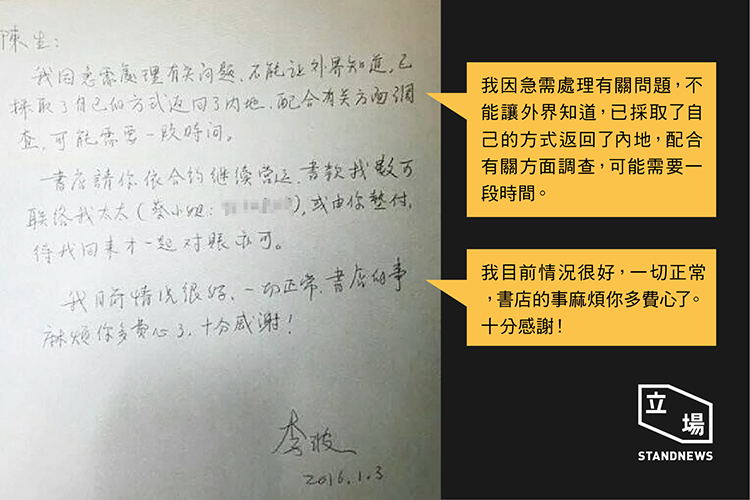 陳生:
我因急需處理有关问题,不能让外界知道,已
採取了自己的方式返回了内地,配合有关方面調
查,可能需要一段時间。
書店請你依合约继续营运,書款找數可
联络我太太(蔡小姐: ),或由你墊付,
待我回来才一起对賬亦可。
我目前情况很好,一切正常,書店的事
麻煩你多費心了,十分感謝!
李波
2016.1.3
我因急需處理有關問題,不
能讓外界知道,已採取了自
己的方式返回了內地,配合
有關方面調查,可能需要一
段時間。
我目前情況很好,一切正常
,書店的事麻煩你多費心了。
十分感謝!
立場
STANDNEWS